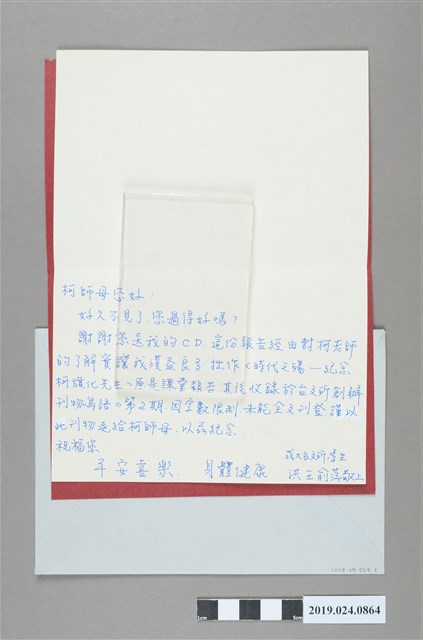 柯師母您好：
好久不見了，您過得好嗎？
謝謝您送我的CD，這份報告經由對柯老師
的了解實讓我獲益良多，拙作《時代之殤—紀念
柯旗化先生》原是課堂報告，其後收錄於台文所創辦
刊物《島語》第2期，因字數限制，未能全文刊登，謹以
此刊物送給柯師母，以茲紀念。
祝福您
平安喜樂、身體健康
成大台文所學生
洪王俞萍敬上
1cm
5cm
2019.024.0864